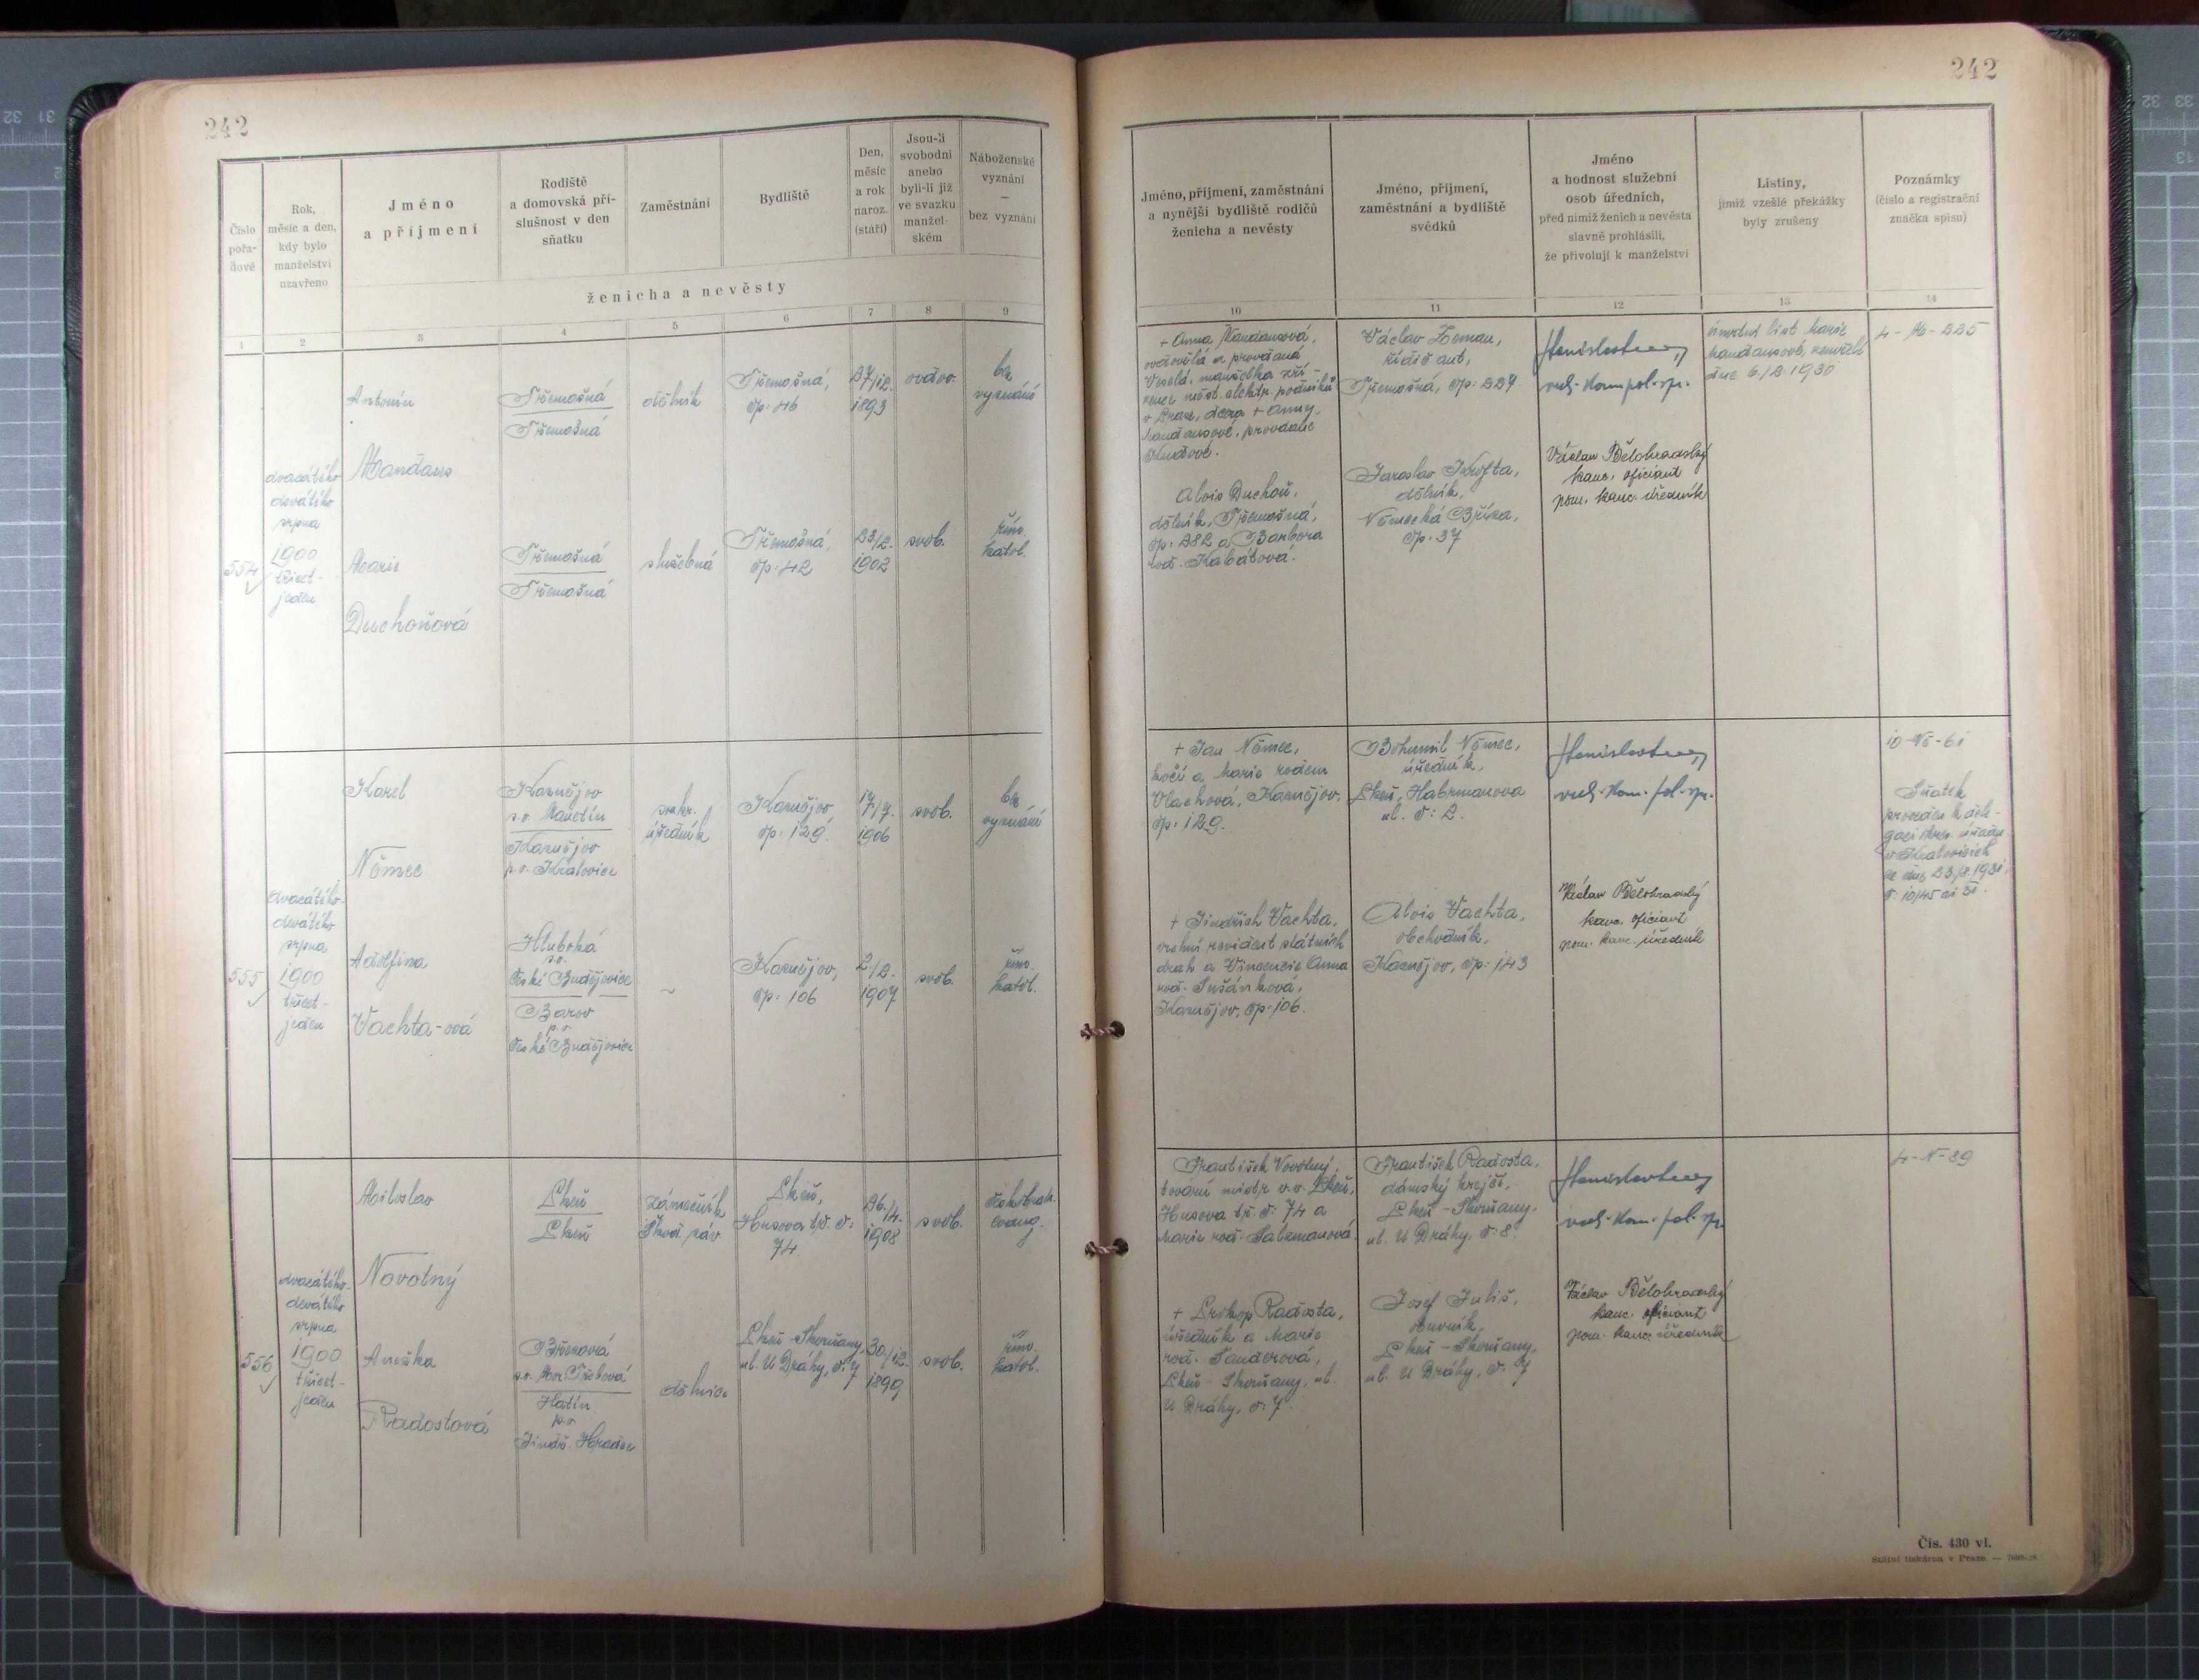 242
Číslo
pořa-
dové
Rok,
měsíc a den,
kdy bylo
manželství
uzavřeno
Jméno
a příjmení
Rodiště
a domovská pří-
slušnost v den
sňatku
Zaměstnání
Bydliště
Den,
měsíc
a rok
naroz.
(stáří)
Jsou-li
svobodni
anebo
byli-li již
ve svazku
manžel-
ském
Náboženské
vyznání
—
bez vyznání
ženicha a nevěsty
1 2 3 4 5 6 7 8 9
554
dvacátého
devátého
srpna
1900
třicet-
jeden
Antonín
Mandaus
Třemošná
Třemošná
dělník
Třemošná,
čp: 46
27/12.
1893
ovdov.
bez
vyznání
Marie
Duchoňová
Třemošná
Třemošná
služebná
Třemošná,
čp: 42
23/2.
1902
svob.
řím.
katol.
555
dvacátého
devátého
srpna
1900
třicet-
jeden
Karel
Němec
Kaznějov
p.o. Manětín
Kaznějov
p.o. Kralovice
soukr.
úředník
Kaznějov
čp: 129.
17/7.
1906
svob.
bez
vyznání
Adolfina
Vachta-ová
Hluboká
p.o.
České Budějovice
Borov
p.o.
České Budějovice
~
Kaznějov,
čp: 106
2/2.
1907
svob.
řím.
katol.
556
dvacátého-
devátého
srpna
1900
třicet-
jeden
Miloslav
Novotný
Plzeň
Plzeň
zámečník
Škod. záv
Plzeň,
Husova tř. č:
74.
26./4.
1908
svob.
českobratr.
evang.
Anežka
Radostová
Březová
p.o. Mor. Třebová
Hatín
p.o.
Jindř. Hradec
dělnice
Plzeň-Skvrňany,
ul. U Dráhy, č. 7
30./12.
1899
svob.
řím.
katol.
242
Jméno, příjmení, zaměstnání
a nynější bydliště rodičů
ženicha a nevěsty
Jméno, příjmení,
zaměstnání a bydliště
svědků
Jméno
a hodnost služební
osob úředních,
před nimiž ženich a nevěsta
slavně prohlásili,
že přivolují k manželství
Listiny,
jimiž vzešlé překážky
byly zrušeny
Poznámky
(číslo a registrační
značka spisu)
10 11 12 13 14
+ Anna Mandausová,
ovdovělá a provdaná
Veselá, manželka zří-
zence měst. elektr. podniků
v Praze, dcera + Anny
Mandausové, provdané
Alois Duchoň,
dělník, Třemošná,
čp: 282 a Barbora
roz. Kabátová.
Václav Zeman,
řidič aut,
Třemošná, čp: 227.
Jaroslav Krofta,
dělník,
Německá Bříza,
čp: 37
Václav Bělohradský
kanc. oficiant
pom. kanc. úředník
úmrtní list Marie
Mandausové, zemřelé
dne 6./2. 1930
4-M-225
+ Jan Němec,
kočí a Marie rodem
Vlachová, Kaznějov,
čp: 129.
+ Jindřich Vachta,
vrchní revident státních
drah a Vincencie Anna
roz. Sušánková,
Kaznějov, čp. 106.
Bohumil Němec,
úředník,
Plzeň, Habrmanova
ul. č: 2.
Alois Vachta,
obchodník,
Kaznějov, čp: 143
Václav Bělohradský
kanc. oficiant
pom. kanc. úředník
10-Ně-61
Sňatek
proveden k dele-
gaci okres. úřadu
v Kralovicích
ze dne 23/8. 1931.
František Novotný,
tovární mistr v.v. Plzeň,
Husova tř. č: 74 a
Marie roz. Salzmanová.
+ Prokop Radosta,
úředník a Marie
roz. Sanderová,
Plzeň-Skvrňany, ul.
U Dráhy, č: 7.
František Radosta,
dámský krejčí,
Plzeň-Skvrňany,
ul. U Dráhy, č: 8.
Josef Juliš,
obuvník,
Plzeň-Skvrňany,
ul. U Dráhy, č. 7
Václav Bělohradský
kanc. oficiant
pom. kanc. úředník
4-N-89
Čís. 430 vl.
Státní tiskárna v Praze.